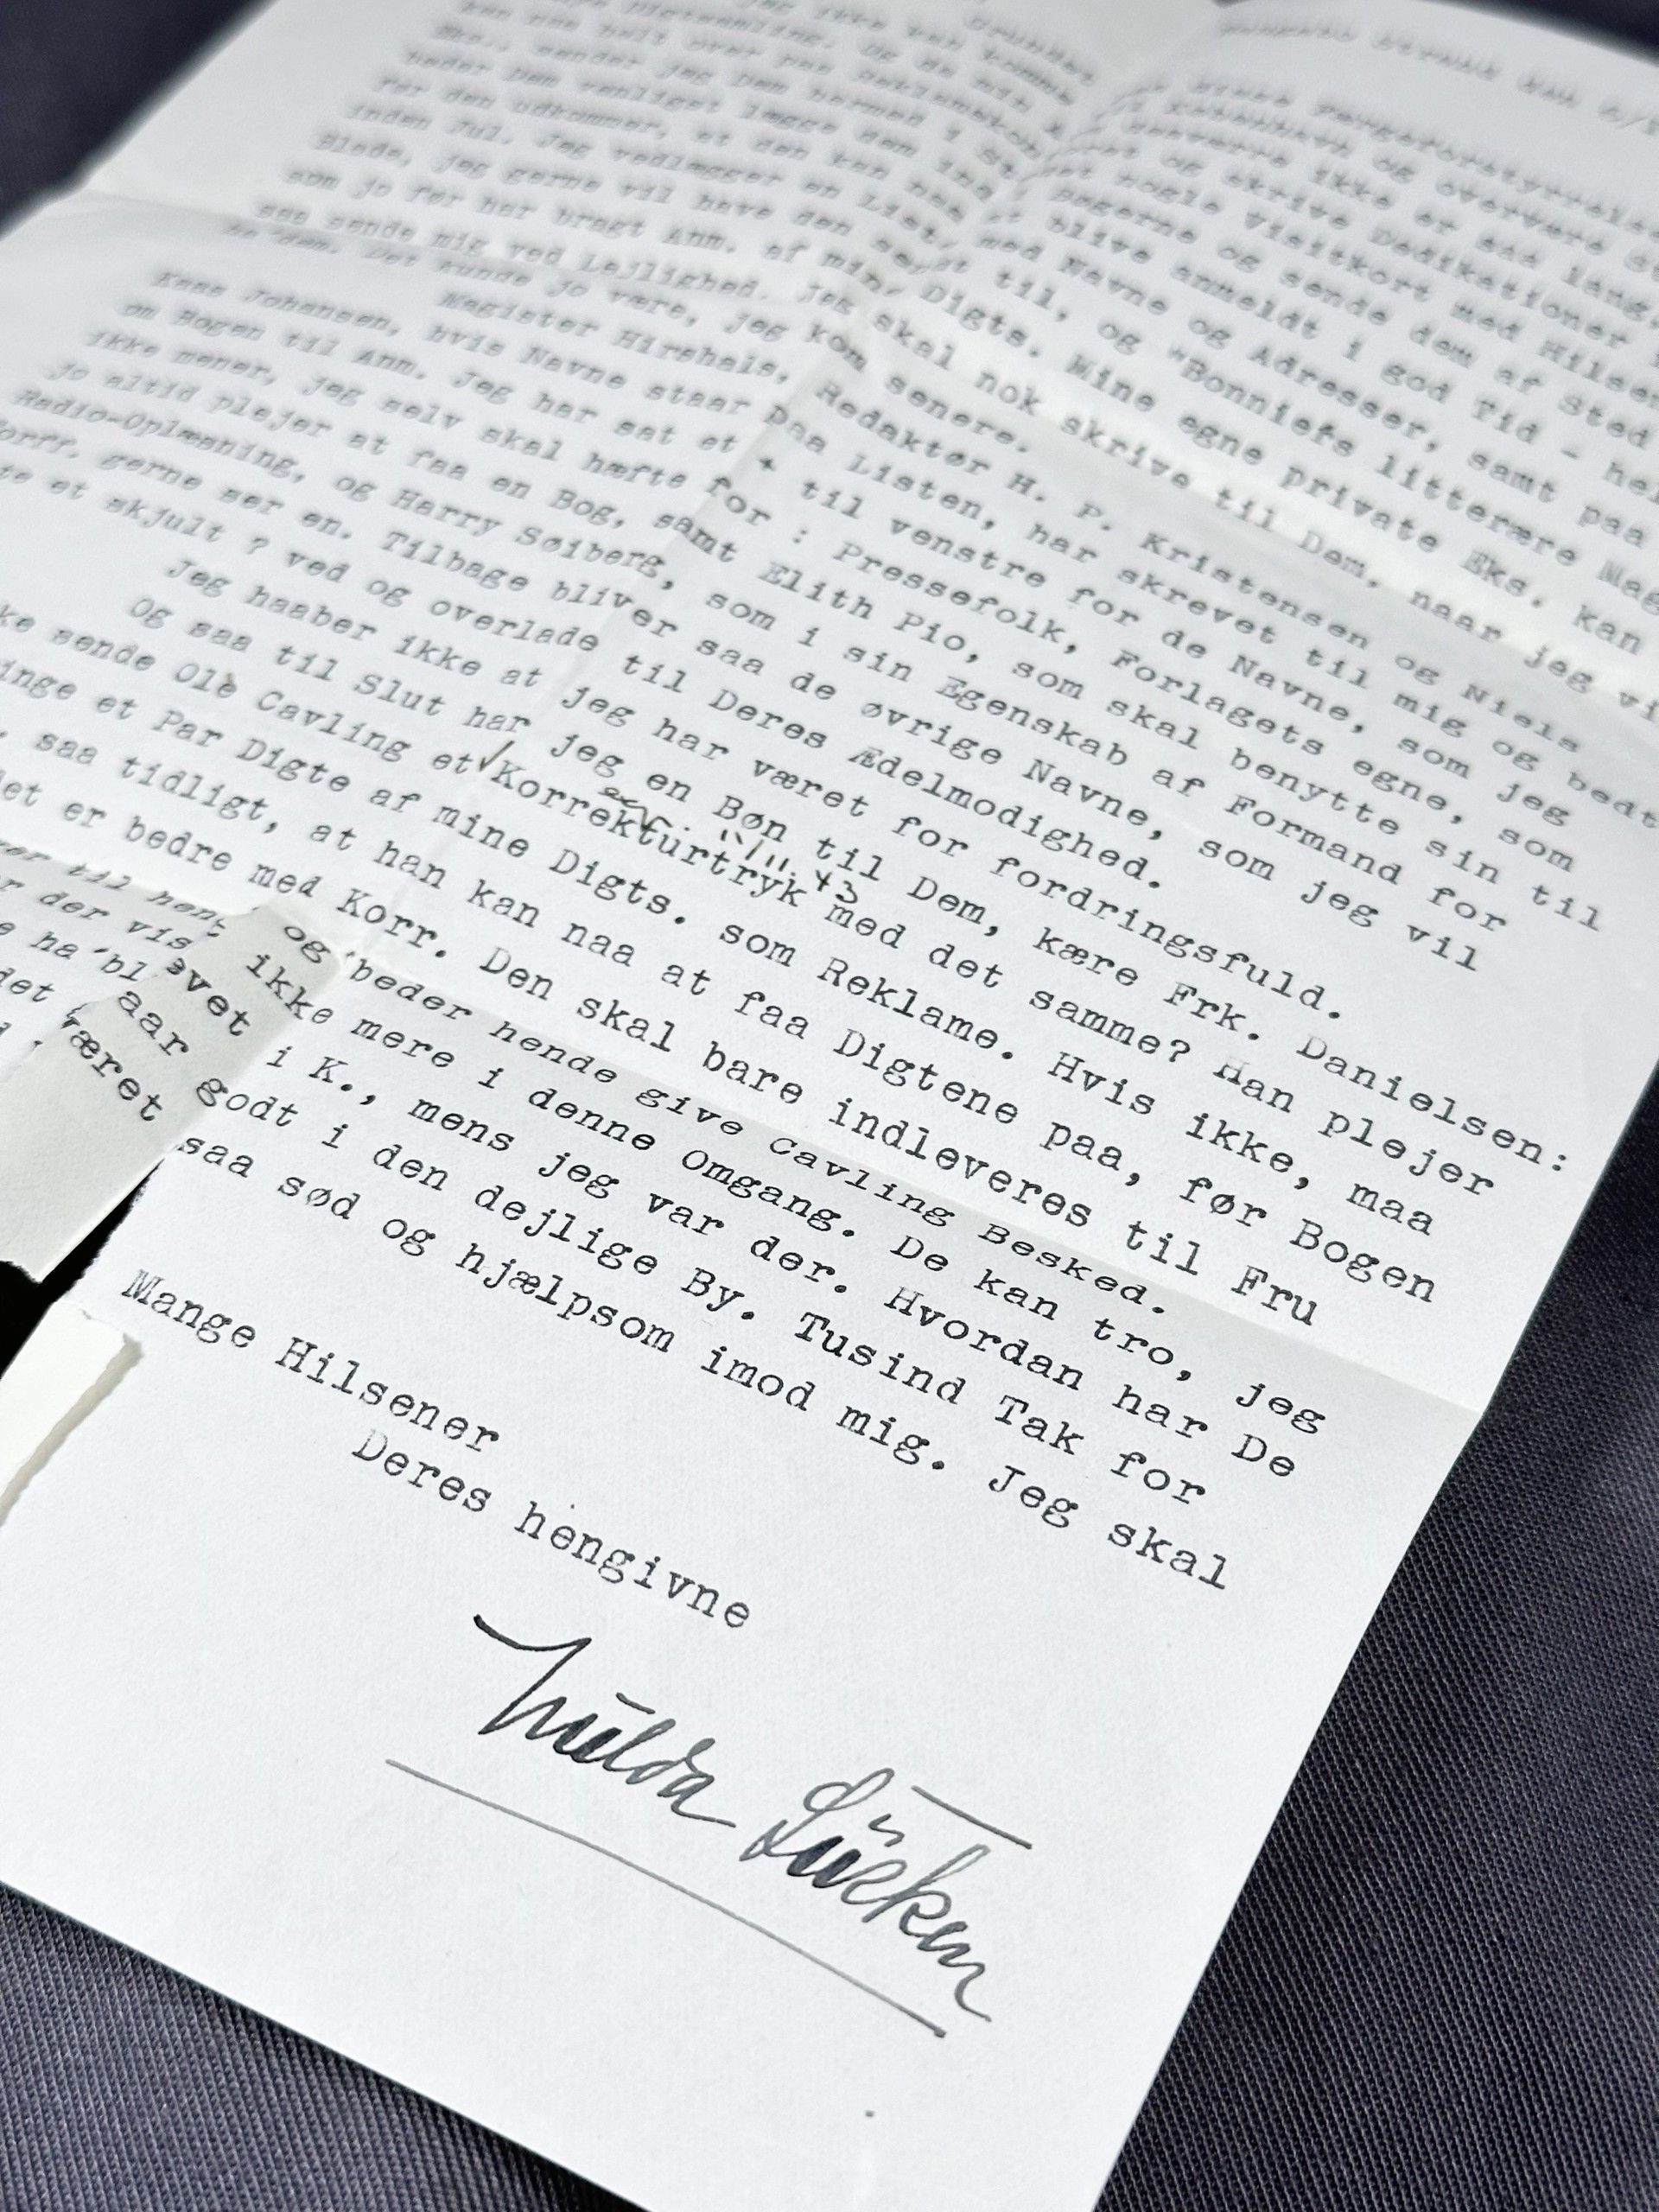 Eks., sender jeg Dem hermed nogle Visitkort med Hilsen
beder Dem venligst lægge dem Bøgerne og sende dem af Sted
før den udkommer, at den kan naa at blive anmeldt i god Tid - hel
inden Jul. Jeg vedlægger en Liste med Navne og Adresser, samt paa
Blade, jeg gerne vil have den sendt til, og "Bonniers litterære Mag
som jo før har bragt Anm. af mine Digts. Mine egne private Eks. kan
saa sende mig ved Lejlighed. Jeg skal nok skrive til Dem, naar jeg vi
dem. Det kunde jo være, jeg kom senere.
Magister Hirshals, Redaktør H. P. Kristensen og Niels
Kaas Johansen, hvis Navne staar paa Listen, har skrevet til mig og bedt
om Bogen til Anm. Jeg har sat et + til venstre for de Navne, som jeg
ikke mener, jeg selv skal hæfte for : Pressefolk, Forlagets egne, som
jo altid plejer at faa en Bog, samt Elith Pio, som skal benytte sin til
Radio-Oplæsning, og Harry Søiberg, som i sin Egenskab af Formand for
orff. gerne ser en. Tilbage bliver saa de øvrige Navne, som jeg vil
te et skjult ? ved og overlade til Deres Ædelmodighed.
Jeg haaber ikke at jeg har været for fordringsfuld.
Og saa til Slut har jeg en Bøn til Dem, kære Frk. Danielsen:
ke sende Ole Cavling et Korrekturtryk med det samme? Han plejer
inge et Par Digte af mine Digts. som Reklame. Hvis ikke, maa
, saa tidligt, at han kan naa at faa Digtene paa, før Bogen
et er bedre med Korr. Den skal bare indleveres til Fru
ver til hen og beder hende give Cavling Besked.
r der vis ikke mere i denne Omgang. De kan tro, jeg
e ha'bl evet i K., mens jeg var der. Hvordan har De
det aar godt i den dejlige By. Tusind Tak for
været saa sød og hjælpsom imod mig. Jeg skal
Mange Hilsener
Deres hengivne
Hulda Lütken